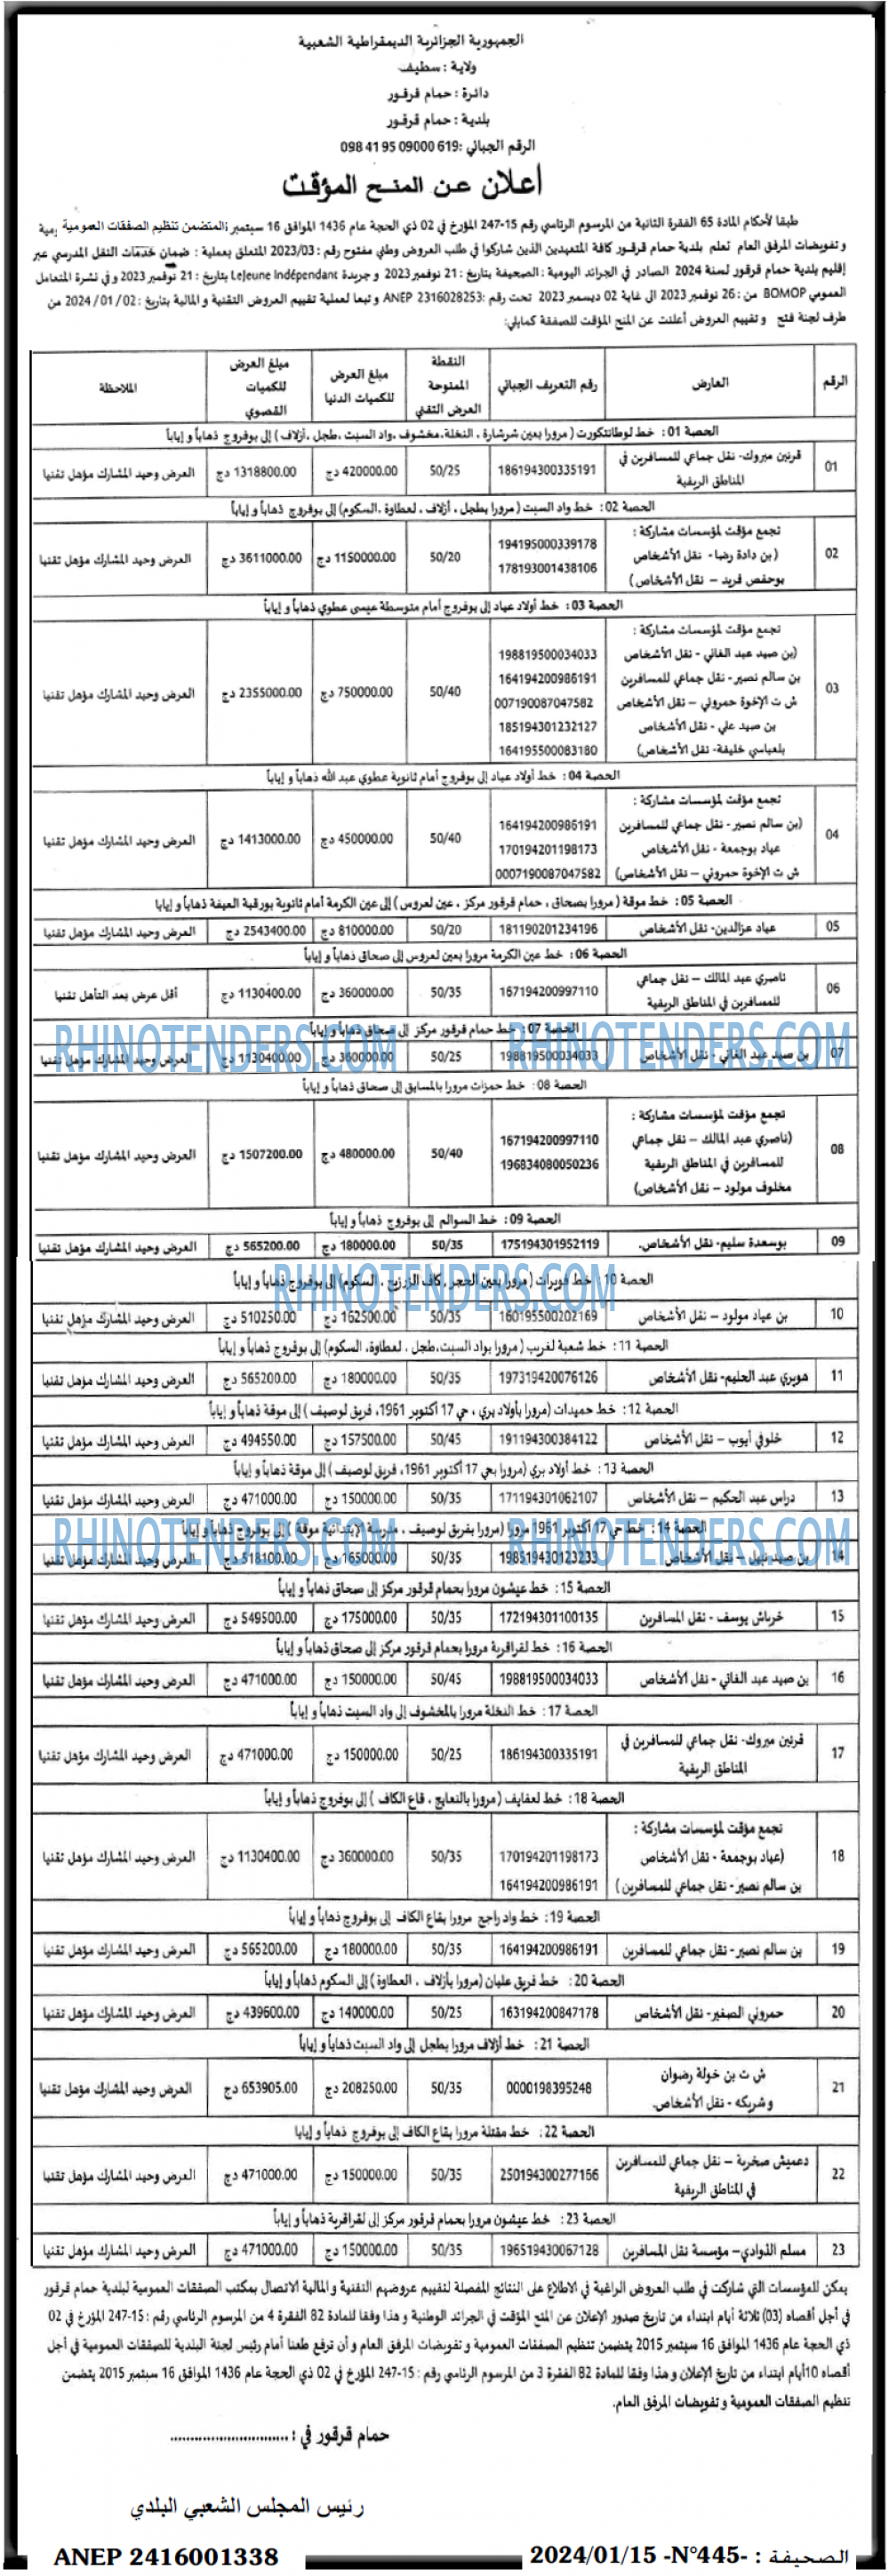 الجمهورية الجزائرية الديمقراطية الشعبية
ولاية : سطيف
دائرة : حمام قرقور
بلدية : حمام قرقور
الرقم الجبائي :619 09000 95 41 098
إعلان عن المنح المؤقت
طبقا لأحكام المادة 65 الفقرة الثانية من المرسوم الرئاسي رقم 15-247 المؤرخ في 02 ذي الحجة عام 1436 الموافق 16 سبتمبر المتضمن تنظيم الصفقات العمومية
و تفويضات المرفق العام تعلم بلدية حمام قرقور كافة المتعهدين الذين شاركوا في طلب العروض وطني مفتوح رقم : 2023/03 المتعلق بعملية : ضمان خدمات النقل المدرسي عبر
إقليم بلدية حمام قرقور لسنة 2024 الصادر في الجرائد اليومية : الصحيفة بتاريخ : 21 نوفمبر 2023 و جريدة LeJeune Indépendant بتاريخ : 21 نوفمبر 2023 و في نشرة المتعامل
العمومي BOMOP من : 26 نوفمبر 2023 الى غاية 02 ديسمبر 2023 تحت رقم :ANEP 2316028253 و تبعا لعملية تقييم العروض التقنية و المالية بتاريخ : 02 / 01 / 2024 من
طرف لجنة فتح و تقييم العروض أعلنت عن المنح المؤقت للصفقة كمايلي:
الرقم العارض رقم التعريف الجبائي النقطة الممنوحة العرض التقني مبلغ العرض للكميات الدنيا مبلغ العرض للكميات القصوى الملاحظة
الحصة 01 : خط لوطانتكورت ( مرورا بعين شرشارة ، النخلة،مخشوف ،واد السبت ،طجل ،أزلاف ) إلى بوفروج ذهاباً و إياباً
01 قرنين مبروك- نقل جماعي للمسافرين في المناطق الريفية 186194300335191 50/25 420000.00 دج 1318800.00 دج العرض وحيد المشارك مؤهل تقنيا
الحصة 02 : خط واد السبت ( مرورا بطجل ، أزلاف ، لعطاوة ،السكوم) إلى بوفروج ذهاباً و إياباً
02 تجمع مؤقت لمؤسسات مشاركة :
( بن دادة رضا - نقل الأشخاص 194195000339178
بوحفص فريد – نقل الأشخاص ) 178193001438106 50/20 1150000.00 دج 3611000.00 دج العرض وحيد المشارك مؤهل تقنيا
الحصة 03 : خط أولاد عياد إلى بوفروج أمام متوسطة عيسى عطوي ذهاباً و إياباً
03 تجمع مؤقت لمؤسسات مشاركة :
(بن صيد عبد الغاني - نقل الأشخاص 198819500034033
بن سالم نصير- نقل جماعي للمسافرين 164194200986191
ش ت الإخوة حمروني – نقل الأشخاص 007190087047582
بن صيد علي - نقل الأشخاص 185194301232127
بلعباسي خليفة- نقل الأشخاص) 164195500083180 50/40 750000.00 دج 2355000.00 دج العرض وحيد المشارك مؤهل تقنيا
الحصة 04 : خط أولاد عياد إلى بوفروج أمام ثانوية عطوي عبد الله ذهاباً و إياباً
04 تجمع مؤقت لمؤسسات مشاركة :
(بن سالم نصير - نقل جماعي للمسافرين 164194200986191
عياد بوجمعة - نقل الأشخاص 170194201198173
ش ت الإخوة حمروني – نقل الأشخاص) 0007190087047582 50/40 450000.00 دج 1413000.00 دج العرض وحيد المشارك مؤهل تقنيا
الحصة 05 : خط موقة ( مرورا بصحاق ، حمام قرقور مركز ، عين لعروس ) إلى عين الكرمة أمام ثانوية بورقبة العيفة ذهاباً و إيابا
05 عياد عزالدين- نقل الأشخاص 181190201234196 50/20 810000.00 دج 2543400.00 دج العرض وحيد المشارك مؤهل تقنيا
الحصة 06 : خط عين الكرمة مرورا بعين لعروس إلى صحاق ذهاباً و إياباً
06 ناصري عبد المالك – نقل جماعي للمسافرين في المناطق الريفية 167194200997110 50/35 360000.00 دج 1130400.00 دج أقل عرض بعد التأهل تقنيا
الحصة 07 : خط حمام قرقور مركز إلى صحاق ذهاباً و إياباً
RHINOTENDERS.COM RHINOTENDERS.COM
07 بن صيد عبد الغاني - نقل الأشخاص 198819500034033 50/25 360000.00 دج 1130400.00 دج العرض وحيد المشارك مؤهل تقنيا
الحصة 08 : خط حمزات مرورا بالمسابق إلى صحاق ذهاباً و إياباً
08 تجمع مؤقت لمؤسسات مشاركة :
(ناصري عبد المالك – نقل جماعي 167194200997110
للمسافرين في المناطق الريفية 196834080050236
مخلوف مولود – نقل الأشخاص) 50/40 480000.00 دج 1507200.00 دج العرض وحيد المشارك مؤهل تقنيا
الحصة 09 : خط السوالم إلى بوفروج ذهاباً و إياباً
09 بوسعدة سليم- نقل الأشخاص. 175194301952119 50/35 180000.00 دج 565200.00 دج العرض وحيد المشارك مؤهل تقنيا
الحصة 10 : خط هويرات ( مرورا بعين الحجر ،كاف الزرزيح ، السكوم) إلى بوفروج ذهاباً و إياباً
RHINOTENDERS.COM
10 بن عياد مولود – نقل الأشخاص 160195500202169 50/35 162500.00 دج 510250.00 دج العرض وحيد المشارك مؤهل تقنيا
الحصة 11 : خط شعبة لغريب ( مرورا بواد السبت،طجل ، لعطاوة، السكوم) إلى بوفروج ذهاباً و إياباً
11 هويري عبد الحليم- نقل الأشخاص 197319420076126 50/35 180000.00 دج 565200.00 دج العرض وحيد المشارك مؤهل تقنيا
الحصة 12 : خط حميدات (مرورا بأولاد بري ، حي 17 أكتوبر 1961، فريق لوصيف ) إلى موقة ذهاباً و إياباً
12 خلوفي أيوب – نقل الأشخاص 191194300384122 50/45 157500.00 دج 494550.00 دج العرض وحيد المشارك مؤهل تقنيا
الحصة 13 : خط أولاد بري (مرورا بحي 17 أكتوبر 1961، فريق لوصيف ) إلى موقة ذهاباً و إياباً
13 دراس عبد الحكيم – نقل الأشخاص 171194301062107 50/35 150000.00 دج 471000.00 دج العرض وحيد المشارك مؤهل تقنيا
الحصة 14 : خط حي 17 أكتوبر 1961 مرورا (مرورا بفريق لوصيف ، مدرسة الإبتدائية موقة ) إلى بوفروج ذهاباً و إياباً
RHINOTENDERS.COM RHINOTENDERS.COM
14 بن صيد نبيل – نقل الأشخاص 198519430123233 50/35 165000.00 دج 518100.00 دج العرض وحيد المشارك مؤهل تقنيا
الحصة 15 : خط عيشون مرورا بحمام قرقور مركز إلى صحاق ذهاباً و إياباً
15 خرباش يوسف - نقل المسافرين 172194301100135 50/35 175000.00 دج 549500.00 دج العرض وحيد المشارك مؤهل تقنيا
الحصة 16 : خط لقراقرية مرورا بحمام قرقور مركز إلى صحاق ذهاباً و إياباً
16 بن صيد عبد الغاني - نقل الأشخاص 198819500034033 50/45 150000.00 دج 471000.00 دج العرض وحيد المشارك مؤهل تقنيا
الحصة 17 : خط النخلة مرورا بالمخشوف إلى واد السبت ذهاباً و إياباً
17 قرنين مبروك- نقل جماعي للمسافرين في المناطق الريفية 186194300335191 50/25 150000.00 دج 471000.00 دج العرض وحيد المشارك مؤهل تقنيا
الحصة 18 : خط لعفايف (مرورا بالنعايج ، قاع الكاف ) إلى بوفروج ذهاباً و إياباً
18 تجمع مؤقت لمؤسسات مشاركة :
(عياد بوجمعة - نقل الأشخاص 170194201198173
بن سالم نصير- نقل جماعي للمسافرين ) 164194200986191 50/35 360000.00 دج 1130400.00 دج العرض وحيد المشارك مؤهل تقنيا
الحصة 19 : خط واد راجح مرورا بقاع الكاف إلى بوفروج ذهاباً و إياباً
19 بن سالم نصير- نقل جماعي للمسافرين 164194200986191 50/35 180000.00 دج 565200.00 دج العرض وحيد المشارك مؤهل تقنيا
الحصة 20 : خط فريق عليان (مرورا بأزلاف ، العطاوة ) إلى السكوم ذهاباً و إياباً
20 حمروني الصغير- نقل الأشخاص 163194200847178 50/25 140000.00 دج 439600.00 دج العرض وحيد المشارك مؤهل تقنيا
الحصة 21 : خط أزلاف مرورا بطجل إلى واد السبت ذهاباً و إياباً
21 ش ت بن خولة رضوان وشريكه - نقل الأشخاص. 0000198395248 50/35 208250.00 دج 653905.00 دج العرض وحيد المشارك مؤهل تقنيا
الحصة 22 : خط مقتلة مرورا بقاع الكاف إلى بوفروج ذهاباً و إيابا
22 دعميش صخرية – نقل جماعي للمسافرين في المناطق الريفية 250194300277166 50/35 150000.00 دج 471000.00 دج العرض وحيد المشارك مؤهل تقنيا
الحصة 23 : خط عيشون مرورا بحمام قرقور مركز إلى لقراقرية ذهاباً و إياباً
23 مسلم الذوادي– مؤسسة نقل المسافرين 196519430067128 50/35 150000.00 دج 471000.00 دج العرض وحيد المشارك مؤهل تقنيا
يمكن للمؤسسات التي شاركت في طلب العروض الراغبة في الاطلاع على النتائج المفصلة لتقييم عروضهم التقنية و المالية الاتصال بمكتب الصفقات العمومية لبلدية حمام قرقور
في أجل أقصاه (03) ثلاثة أيام ابتداء من تاريخ صدور الإعلان عن المنح المؤقت في الجرائد الوطنية و هذا وفقا للمادة 82 الفقرة 4 من المرسوم الرئاسي رقم : 15-247 المؤرخ في 02
ذي الحجة عام 1436 الموافق 16 سبتمبر 2015 يتضمن تنظيم الصفقات العمومية و تفويضات المرفق العام و أن ترفع طعنا أمام رئيس لجنة البلدية للصفقات العمومية في أجل
أقصاه 10أيام ابتداء من تاريخ الإعلان و هذا وفقا للمادة 82 الفقرة 3 من المرسوم الرئاسي رقم : 15-247 المؤرخ في 02 ذي الحجة عام 1436 الموافق 16 سبتمبر 2015 يتضمن
تنظيم الصفقات العمومية و تفويضات المرفق العام.
حمام قرقور في : ..............................
رئيس المجلس الشعبي البلدي
الصحيفة : -N°445- 2024/01/15 ANEP 2416001338